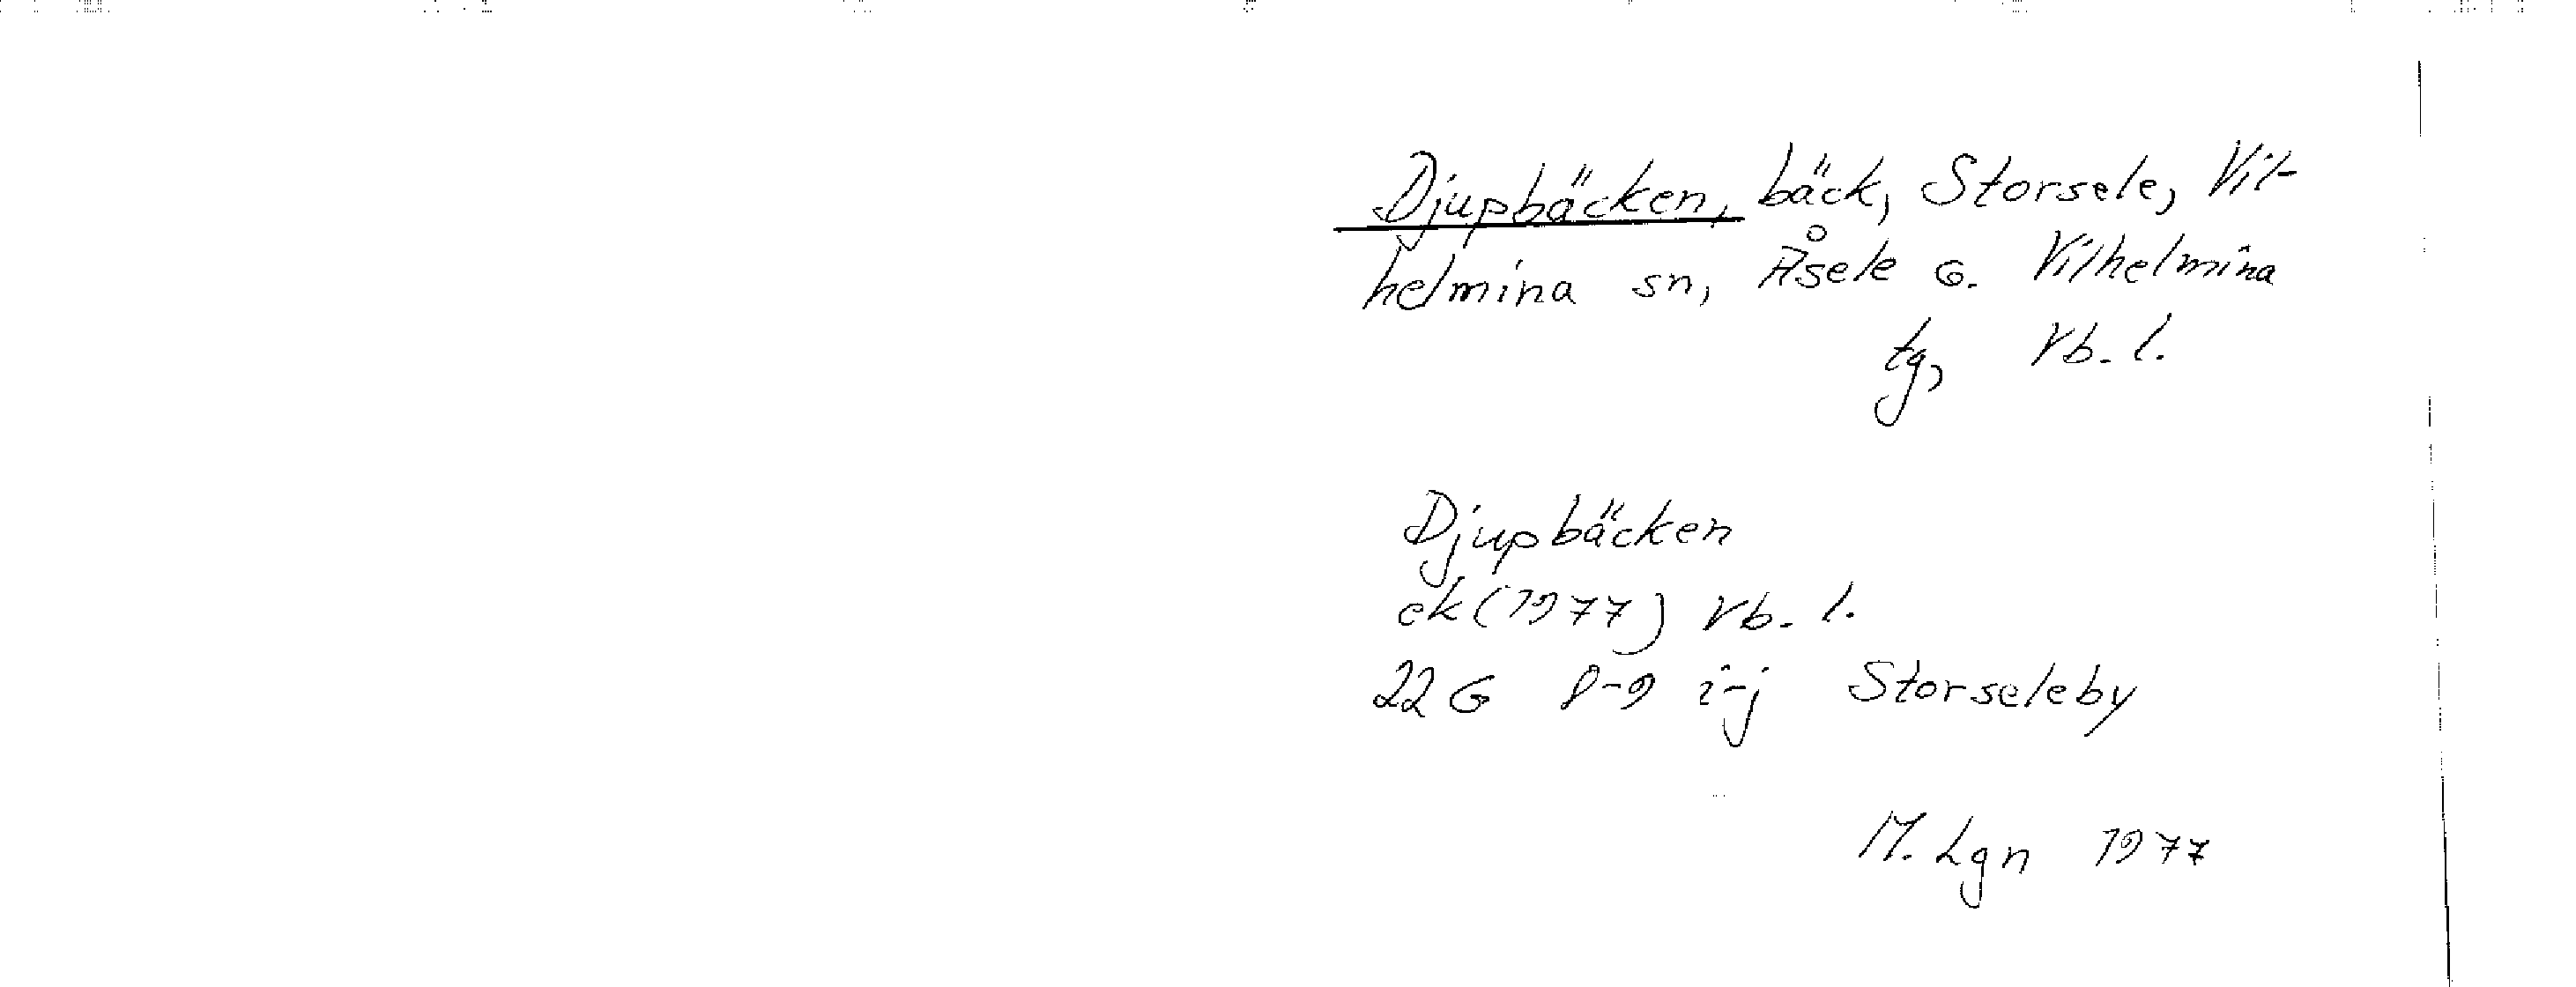 Djupbäcken, bäck, Storsele, Vil-
helmina sn, Åsele o. Vilhelmina
tg, Vb. l.
Djupbäcken
ek (1977) Vb. l.
22 G 8-9 i-j Storseleby
M. Lgn 1977